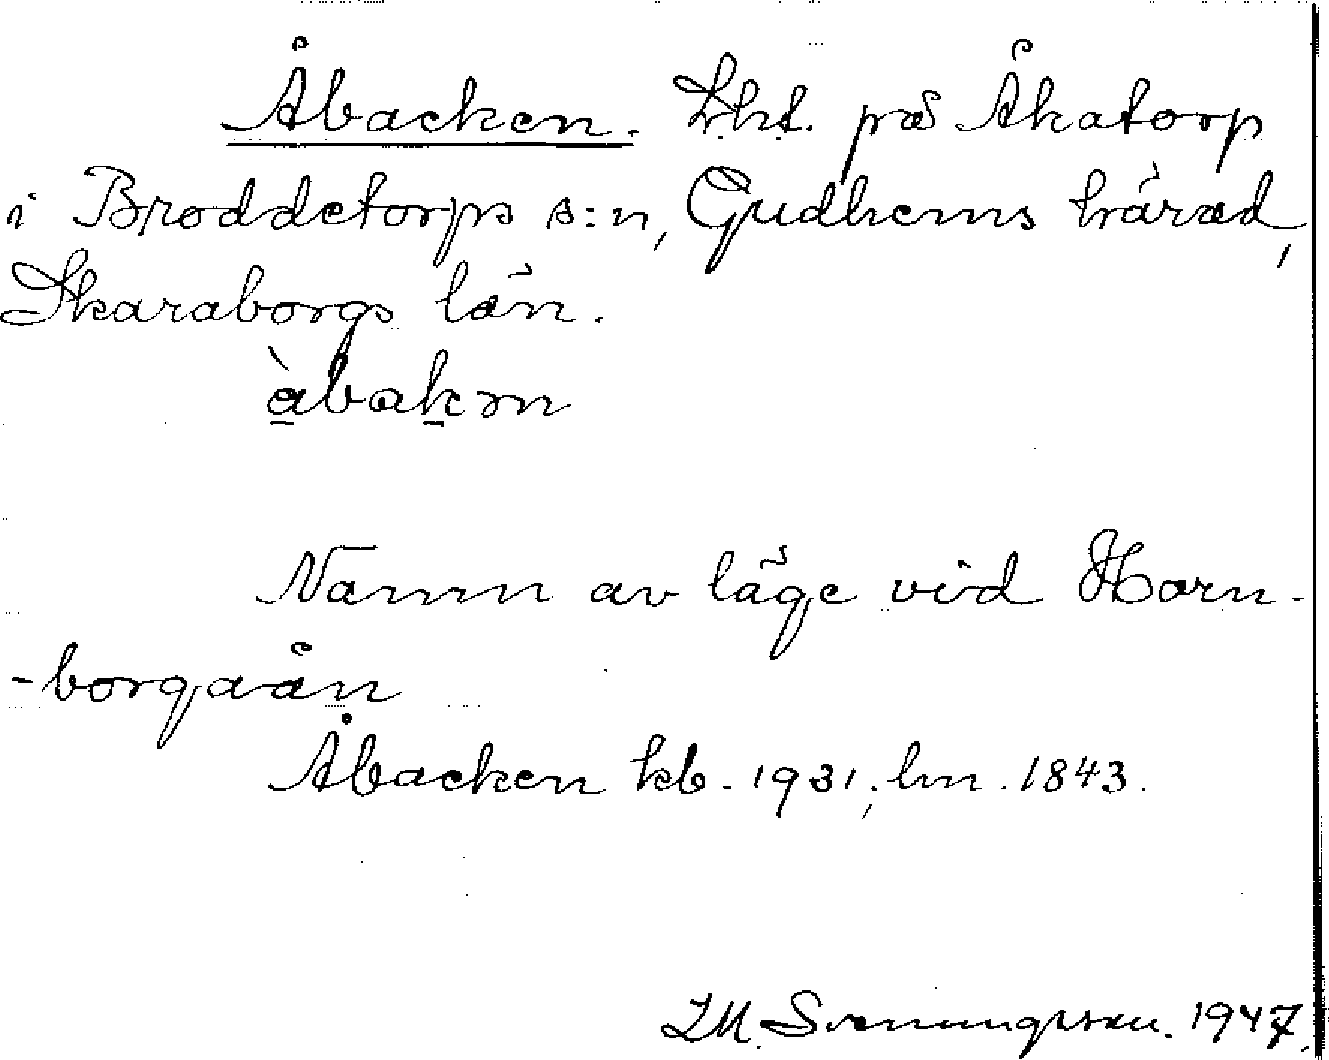 Åbacken. Lht. på Åkatorp
i Broddetorps s:n, Gudhems härad,
Skaraborgs län.
àbakɷn
Namn av läge vid Horn-
-borgaån
Åbacken kb. 1931; hm. 1843.
I.M. Svenungsson. 1947.